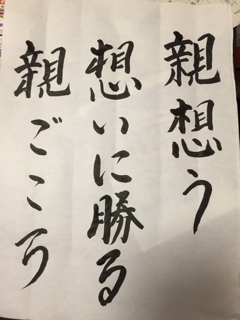 親想う
想いに勝る
親ごころ